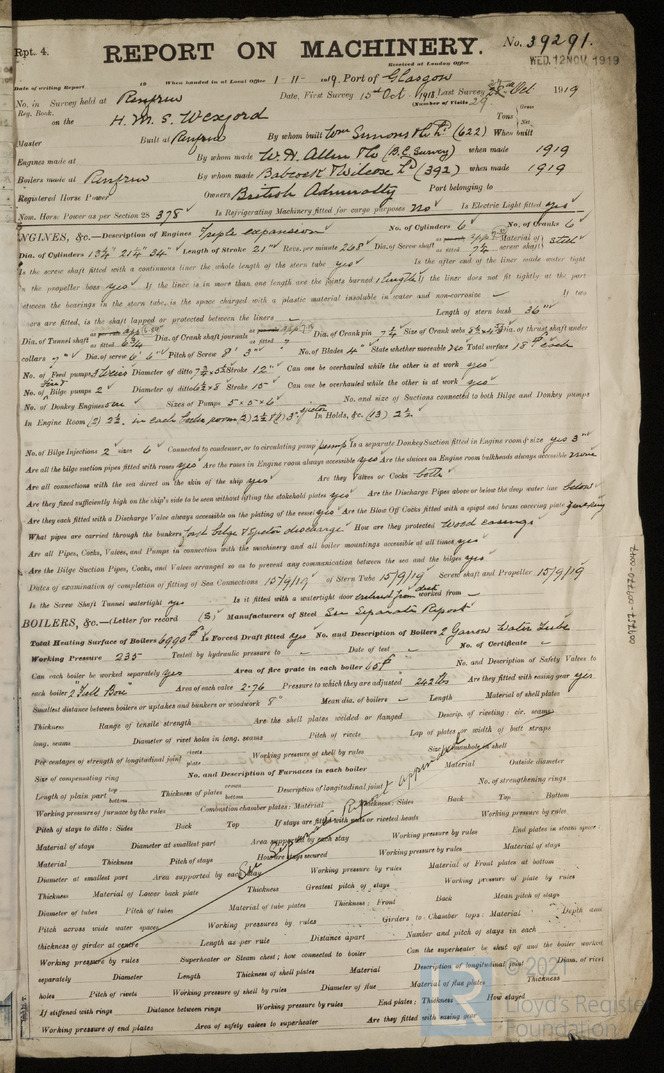 Rpt. 4.
REPORT ON MACHINERY. No. 39291.
Received at London Office WED. 12 NOV. 1919
Date of writing Report 19 When handed in at Local Office 1-11-1919 Port of Glasgow
No. in Survey held at Renfrew Date, First Survey 15th Oct 1918 Last Survey 28th Oct 1919
Reg. Book. (Number of Visits 29
on the H. M. S. Wexford Tons Gross Net
Master Built at Renfrew By whom built Wm Simons & Co Ld (622) When built 1919
Engines made at By whom made W. H. Allen & Co (B.C. Survey) when made 1919
Boilers made at Renfrew By whom made Babcock & Wilcox Ld (392) when made 1919
Registered Horse Power Owners British Admiralty Port belonging to
Nom. Horse Power as per Section 28 378 Is Refrigerating Machinery fitted for cargo purposes No Is Electric Light fitted yes
ENGINES, &c.—Description of Engines Triple expansion No. of Cylinders 6 No. of Cranks 6
Dia. of Cylinders 13¾" 21¼" 34" Length of Stroke 21" Revs. per minute 268 Dia. of Screw shaft as fitted 7¾ Material of screw shaft Steel
Is the screw shaft fitted with a continuous liner the whole length of the stern tube yes Is the after end of the liner made water tight
in the propeller boss yes If the liner is in more than one length are the joints burned 1 length If the liner does not fit tightly at the part
between the bearings in the stern tube, is the space charged with a plastic material insoluble in water and non-corrosive — If two
liners are fitted, is the shaft lapped or protected between the liners — Length of stern bush 36"
Dia. of Tunnel shaft as fitted 6¾ Dia. of Crank shaft journals as fitted 7 Dia. of Crank pin 7¼ Size of Crank webs Dia. of thrust shaft under
collars 7" Dia. of screw 6' 6" Pitch of Screw 8' 3" No. of Blades 4 State whether moveable No Total surface 18 each
No. of Feed pumps 3 Weirs Diameter of ditto Stroke 12" Can one be overhauled while the other is at work yes
No. of Bilge pumps 2 Diameter of ditto Stroke 15" Can one be overhauled while the other is at work yes
No. of Donkey Engines one Sizes of Pumps 5 x 5 x 6 No. and size of Suctions connected to both Bilge and Donkey pumps
In Engine Room (2) 2½ in each boiler room 2) 2½ & (1) 3" ejector In Holds, &c. (13) 2½
No. of Bilge Injections 2 sizes 6 Connected to condenser, or to circulating pump pump Is a separate Donkey Suction fitted in Engine room & size yes 3"
Are all the bilge suction pipes fitted with roses yes Are the roses in Engine room always accessible yes Are the sluices on Engine room bulkheads always accessible none
Are all connections with the sea direct on the skin of the ship yes Are they Valves or Cocks both
Are they fixed sufficiently high on the ship's side to be seen without lifting the stokehold plates yes Are the Discharge Pipes above or below the deep water line below
Are they each fitted with a Discharge Valve always accessible on the plating of the vessel yes Are the Blow Off Cocks fitted with a spigot and brass covering plate
What pipes are carried through the bunkers bilge & Ejector discharge How are they protected Wood casings
Are all Pipes, Cocks, Valves, and Pumps in connection with the machinery and all boiler mountings accessible at all times yes
Are the Bilge Suction Pipes, Cocks, and Valves arranged so as to prevent any communication between the sea and the bilges yes
Dates of examination of completion of fitting of Sea Connections 15/9/19 of Stern Tube 15/9/19 Screw shaft and Propeller 15/9/19
Is the Screw Shaft Tunnel watertight yes Is it fitted with a watertight door worked from —
BOILERS, &c.—(Letter for record (S) Manufacturers of Steel See Separate Report
Total Heating Surface of Boilers 6990 Is Forced Draft fitted yes No. and Description of Boilers 2 Yarrow Water Tube
Working Pressure 235 Tested by hydraulic pressure to — Date of test — No. of Certificate —
Can each boiler be worked separately yes Area of fire grate in each boiler 65 No. and Description of Safety Valves to
each boiler 2 "Full Bore" Area of each valve 2.76 Pressure to which they are adjusted 242 lbs Are they fitted with easing gear yes
Smallest distance between boilers or uptakes and bunkers or woodwork 8" Mean dia. of boilers — Length Material of shell plates
Thickness Range of tensile strength Are the shell plates welded or flanged Descrip. of riveting: cir. seams
long. seams Diameter of rivet holes in long. seams Pitch of rivets Lap of plates or width of butt straps
Per centages of strength of longitudinal joint rivets plate Working pressure of shell by rules Size of manhole in shell
Size of compensating ring No. and Description of Furnaces in each boiler Material Outside diameter
Length of plain part top bottom Thickness of plates crown bottom Description of longitudinal joint No. of strengthening rings
Working pressure of furnace by the rules Combustion chamber plates: Material Thickness: Sides Back Top Bottom
Pitch of stays to ditto: Sides Back Top If stays are fitted with nuts or riveted heads Working pressure by rules
Material of stays Diameter at smallest part Area supported by each stay Working pressure by rules End plates in steam space:
Material Thickness Pitch of stays How are stays secured Working pressure by rules Material of stays
Diameter at smallest part Area supported by each stay Working pressure by rules Material of Front plates at bottom
Thickness Material of Lower back plate Thickness Greatest pitch of stays Working pressure of plate by rules
Diameter of tubes Pitch of tubes Material of tube plates Thickness: Front Back Mean pitch of stays
Pitch across wide water spaces Working pressures by rules Girders to Chamber tops: Material Depth and
thickness of girder at centre Length as per rule Distance apart Number and pitch of stays in each
Working pressure by rules Superheater or Steam chest; how connected to boiler Can the superheater be shut off and the boiler worked
separately Diameter Length Thickness of shell plates Material Description of longitudinal joint Diam. of rivet
holes Pitch of rivets Working pressure of shell by rules Diameter of flue Material of flue plates Thickness
If stiffened with rings Distance between rings Working pressure by rules End plates: Thickness How stayed
Working pressure of end plates Area of safety valves to superheater Are they fitted with easing gear
See Separate Report appended
009757-009770-0047
© 2021
Lloyd's Register
Foundation